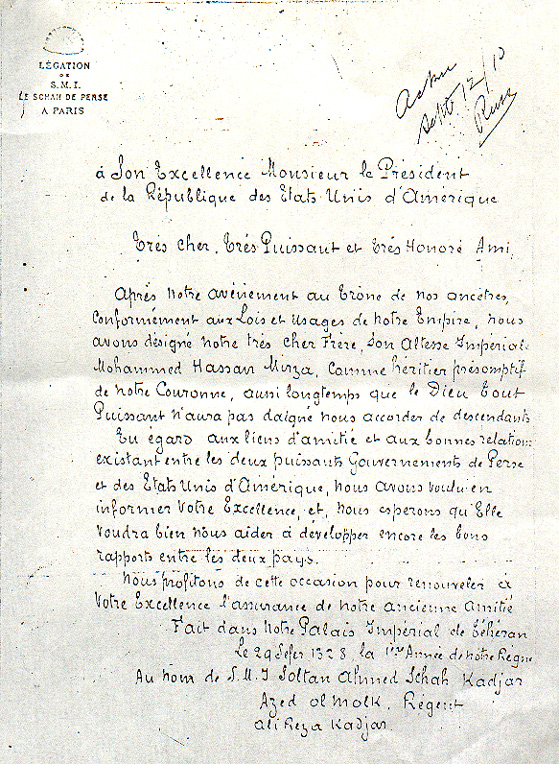 LÉGATION
DE
S.M.I.
LE SCHAH DE PERSE
A PARIS
Sept 12/10
à Son Excellence Monsieur le Président
de la République des Etats Unis d'Amérique
Très Cher, Très Puissant et Très Honoré Ami,
Après notre avènement au Trône de nos ancêtres,
Conformément aux Lois et Usages de notre Empire, nous
avons désigné notre très cher Frère, Son Altesse Impériale
Mohammed Hassan Mirza, Comme héritier présomptif
de notre Couronne, aussi longtemps que le Dieu Tout
Puissant n'aura pas daigné nous accorder de descendants
Eu égard aux liens d'amitié et aux bonnes relations
existant entre les deux puissants Gouvernements de Perse
et des Etats Unis d'Amérique, nous avons voulu en
informer Votre Excellence, et, nous esperons qu'Elle
voudra bien nous aider à développer encore les bons
rapports entre les deux pays.
Nous profitons de cette occasion pour renouveler à
Votre Excellence l'assurance de notre ancienne Amitié
Fait dans notre Palais Impérial de Téhéran
Le 29 Sefer 1328 la 1ère Année de notre Règne
Au nom de S.M.I Soltan Ahmed Schah Kadjar
Azed ol Molk, Régent
Ali Reza Kadjar